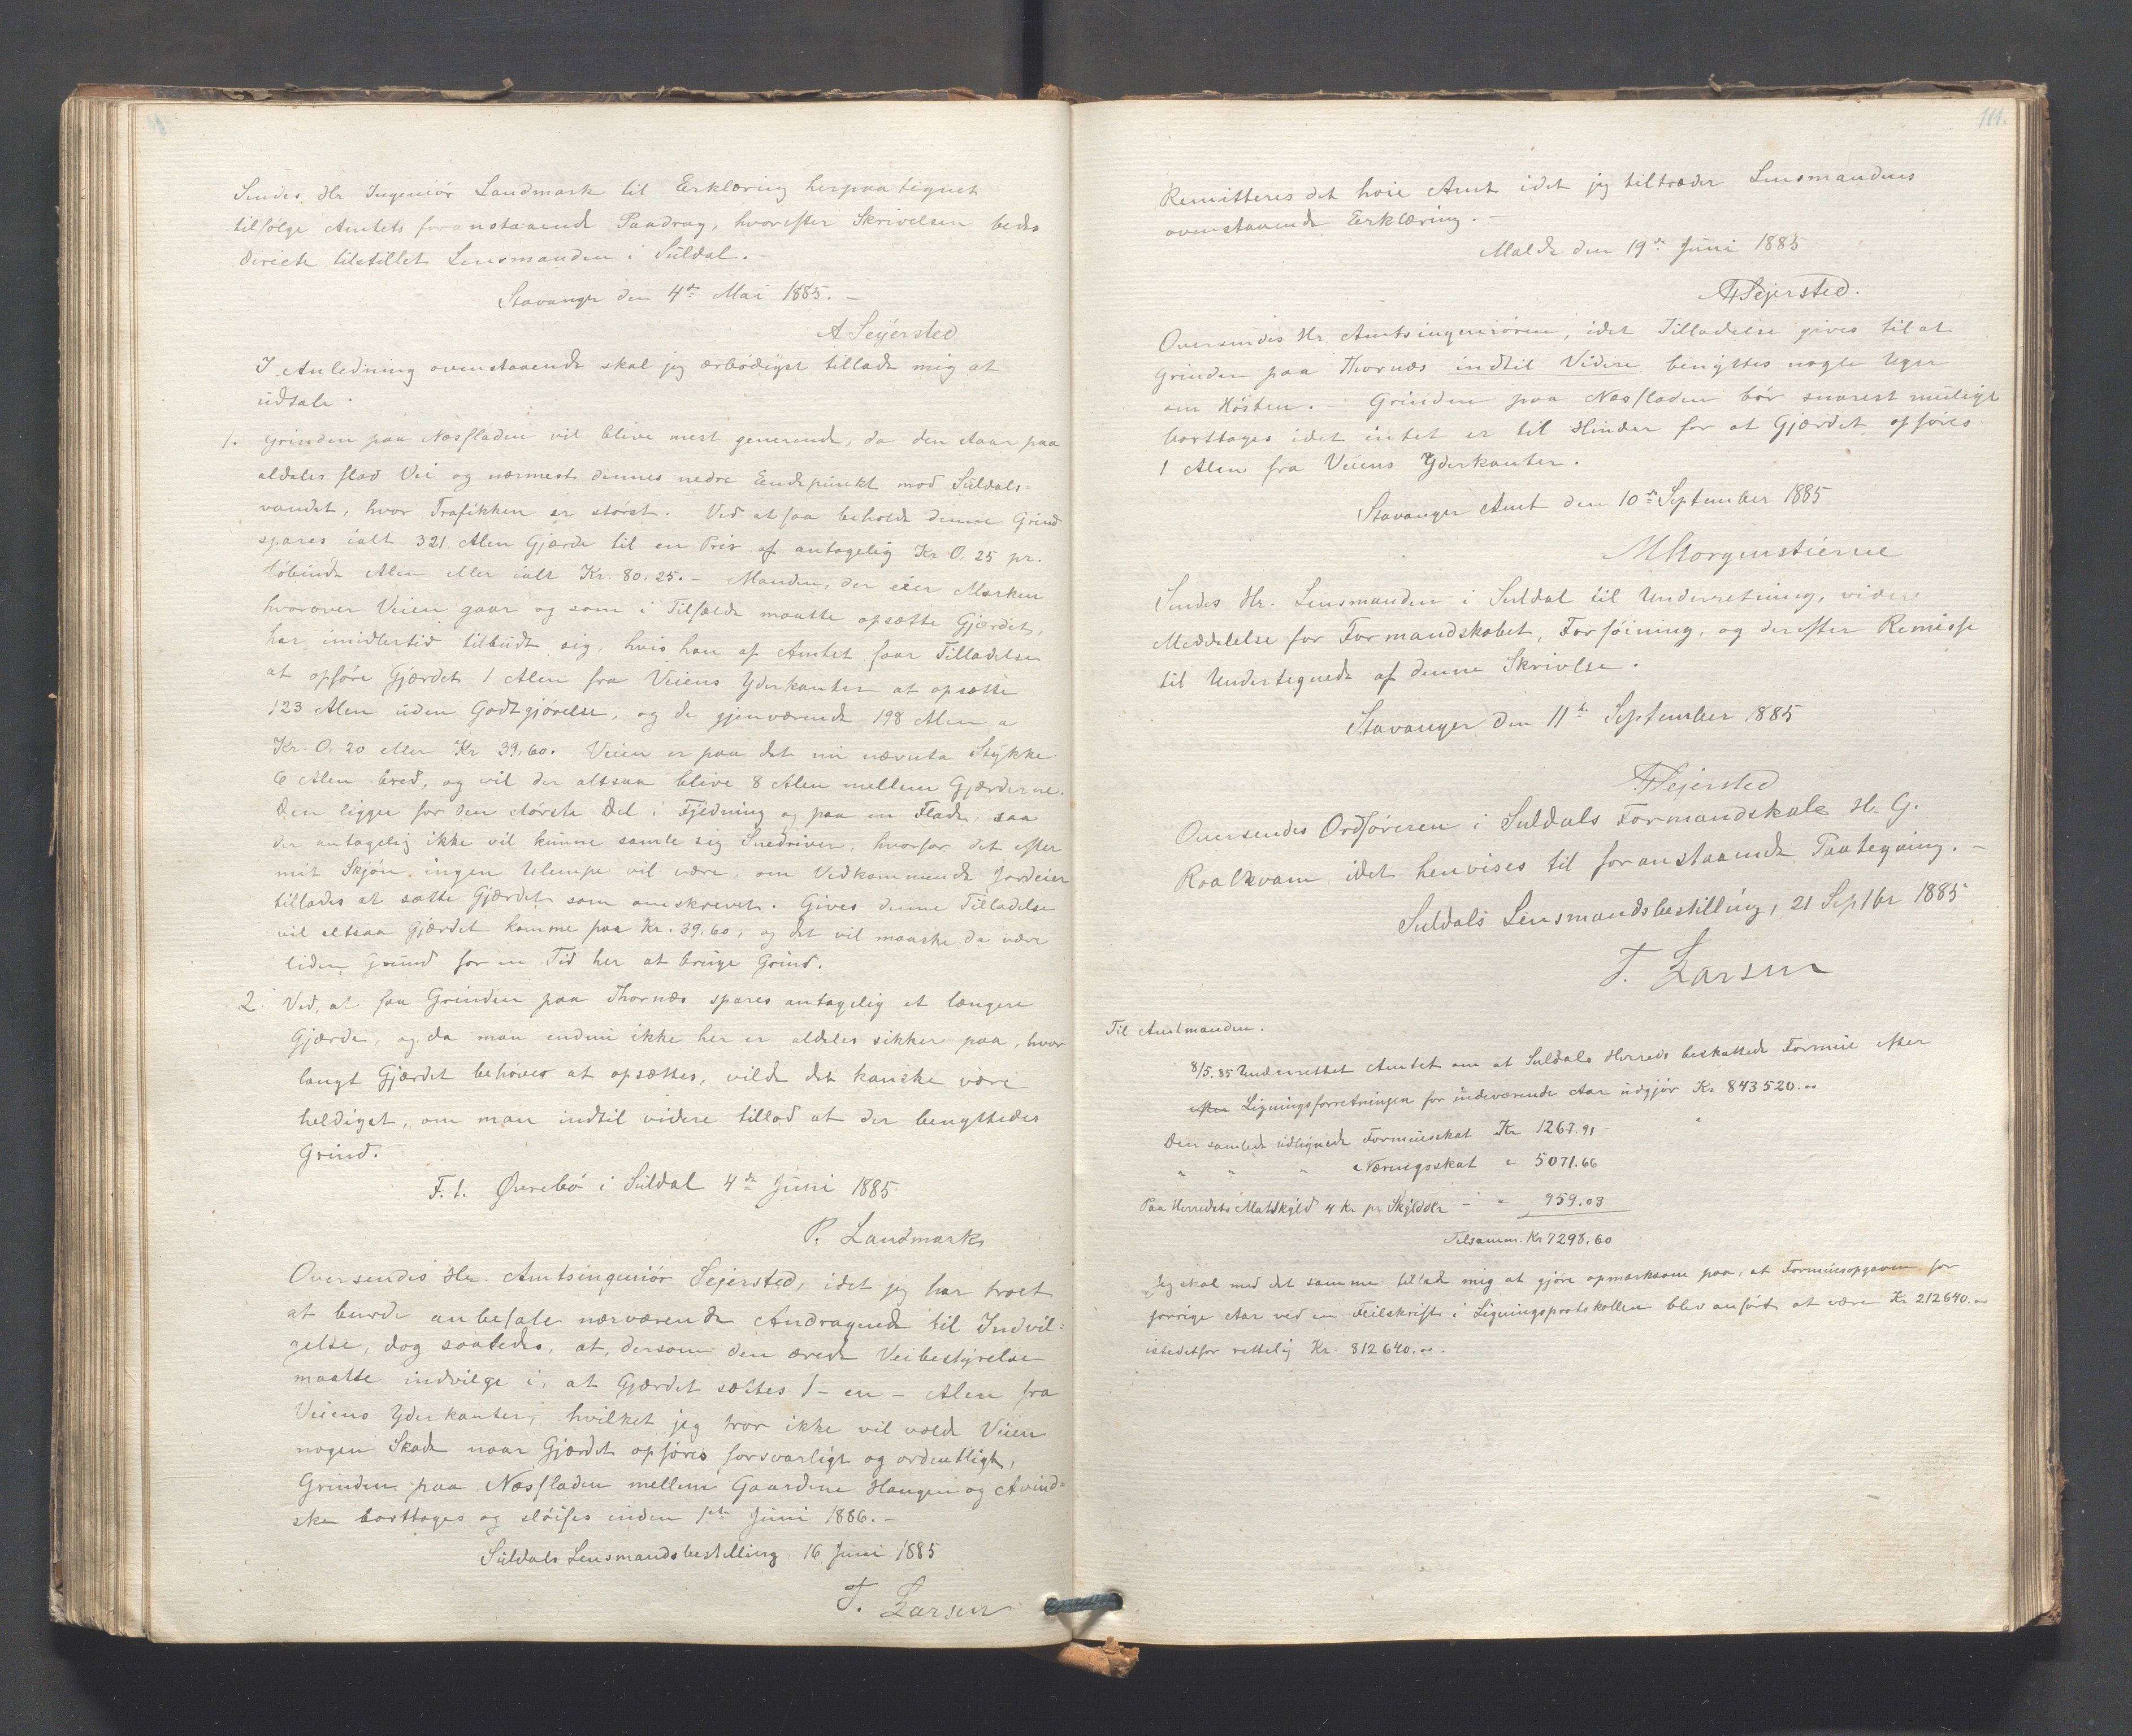 Sendes Hr Ingeniør Landmark til Erklæring herpaa tegnet
tilfølge Amtets foranstaaende Paadrag, hvorefter Skrivelsen bedes
Directe tilstillet Lensmanden i Suldal. –
Stavanger den 4de Mai 1885. –
A Sejersted
I Anledning ovenstaaende skal jeg ærbødigst tillade mig at
udtale.
1. Grinden paa Næsfladen vil blive mest generende, da den staar paa
aldeles flad Vei og nærmest dennes nedre Endepunkt mod Suldals=
vandet, hvor Trafikken er størst. Ved at faa beholde denne Grind
spares ialt 321 Alen Gjærde til en Pris af antagelig Kr 0.25 pr.
løbende Alen eller ialt Kr. 80.25. – Manden, der eier Marken
hvorover Veien gaar og som i Tilfælde maatte opsætte Gjærdet,
har imidlertid tilbudt sig, hvis han af Amtet faar Tilladelse
at opføre Gjærdet 1 Alen fra Veiens Yderkanter at opsætte
123 Alen uden Godtgjørelse, og de gjenværende 198 Alen a
Kr. 0.20 eller Kr 39.60. Veien er paa det nu nævnte Stykke
6 Alen bred, og vil der altsaa blive 8 Alen mellem Gjærderne.
Den ligger for den største Del i Fyldning og paa en Flade, saa
der antagelig ikke vil kunne samle sig Snedriver, hvorfor det efter
mit Skjøn ingen Ulempe vil være, om Vedkommende Jordeier
tillades at sætte Gjærdet som omskrevet. Gives denne Tilladelse
vil altsaa Gjærdet komme paa Kr. 39.60, og det vil maaske da være
liden Grund for en Tid her at bruge Grind.
2. Ved at faa Grinden paa Thornæs spares antagelig et længere
Gjærde, og da man endnu ikke her er aldeles sikker paa, hvor
langt Gjærdet behøves at opsættes, vilde det kanske være
heldigst, om man indtil videre tillod at der benyttedes
Grind.
F. t. Øvrebø i Suldal 4de Juni 1885
P. Landmark
Oversendes Hr. Amtsingeniør Sejersted, idet jeg har troet
at burde anbefale nærværende Andragende til Indvil=
gelse, dog saaledes, at, dersom den ærede Veibestyrelse
maatte indvilge i, at Gjærdet sættes 1 – en – Alen fra
Veiens Yderkanter, hvilket jeg tror ikke vil volde Veien
nogen Skade naar Gjærdet opføres forsvarligt og ordentligt,
Grinden paa Næsfladen mellem Gaardene Haugen og Avind=
ske borttages og sløifes inden 1ste Juni 1886. –
Suldals Lensmandsbestilling 16 Juni 1885
T. Larsen
111.
Remitteres det høie Amt idet jeg tiltræder Lensmandens
ovenstaaende Erklæring. –
Malde den 19de Juni 1885
A Sejersted.
Oversendes Hr. Amtsingeniøren, idet Tilladelse gives til at
Grinden paa Thornæs indtil Videre benyttes nogle Uger
om Høsten. – Grinden paa Næsfladen bør snarest muligt
borttages idet intet er til Hinder for at Gjærdet opføres
1 Alen fra Veiens Yderkanter.
Stavanger Amt den 10de September 1885
Morgenstierne
Sendes Hr. Lensmanden i Suldal til Underretning, videre
Meddelelse for Formandskabet, Forføining, og derefter Remisse
til Undertegnede af denne Skrivelse.
Stavanger den 11te September 1885
A Sejersted
Oversendes Ordføreren i Suldals Formandskab H. G.
Roalkvam idet henvises til foranstaaende Paategning. –
Suldals Lensmandsbestilling, 21 Septbr 1885
T. Larsen
Til Amtmanden.
8/5.85 Underrettet Amtet om at Suldals Herreds beskattede Formue efter
efter Ligningsforretningen for indeværende Aar udgjør Kr 843520.00
Den samlede udlignede Formueskat Kr 1267.91
" " " Næringsskat " 5071.66
Paa Herredets Matskyld 4 Kr pr Skylddlr – " 959.03
Tilsamm. Kr 7298.60
Jeg skal med det samme tillade mig at gjøre opmærksom paa, at Formuesopgaven for
forrige Aar ved en Feilskrift i Ligningsprotokollen blev anført at være Kr 212640.00
istedetfor rettelig Kr. 812640.00.